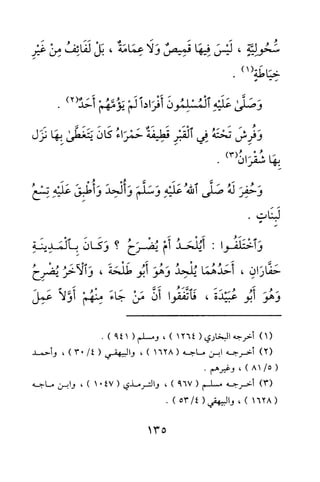 سُحُولِيَّةٍ ، لَيْسَ فِيهَا قَمِيصٌ وَلَا عِمَامَةٌ ، بَلْ لَفَائِفُ مِنْ غَيْرِ
خِيَاطَةٍ(١) .
وَصَلَّىٰ عَلَيْهِ ٱلْمُسْلِمُونَ أَفْرَاداً لَمْ يَؤُمَّهُمْ أَحَدٌ(٢) .
وَفُرِشَ تَحْتَهُ فِي ٱلْقَبْرِ قَطِيفَةٌ حَمْرَاءُ كَانَ يَتَغَطَّىٰ بِهَا نَزَلَ
بِهَا شُقْرَانُ(٣) .
وَحُفِرَ لَهُ صَلَّى ٱللهُ عَلَيْهِ وَسَلَّمَ وَأُلْحِدَ وَأُطْبِقَ عَلَيْهِ تِسْعُ
لَبِنَاتٍ .
وَٱخْتَلَفُوا : أَيُلْحَدُ أَمْ يُضْرَحُ ؟ وَكَانَ بِٱلْمَدِينَةِ
حَفَّارَانِ ، أَحَدُهُمَا يُلْحِدُ وَهُوَ أَبُو طَلْحَةَ ، وَٱلْآخَرُ يُضْرِحُ
وَهُوَ أَبُو عُبَيْدَةَ ، فَٱتَّفَقُوا أَنَّ مَنْ جَاءَ مِنْهُمْ أَوَّلاً عَمِلَ
(١) أخرجه البخاري ( ١٢٦٤ ) ، ومسلم ( ٩٤١ ) .
(٢) أخرجه ابن ماجه ( ١٦٢٨ ) ، والبيهقي ( ٣٠/٤ ) ، وأحمد
( ٨١/٥ ) ، وغيرهم .
(٣) أخرجه مسلم ( ٩٦٧ ) ، والترمذي ( ١٠٤٧ ) ، وابن ماجه
( ١٦٢٨ ) ، والبيهقي ( ٥٣/٤ ) .
١٣٥